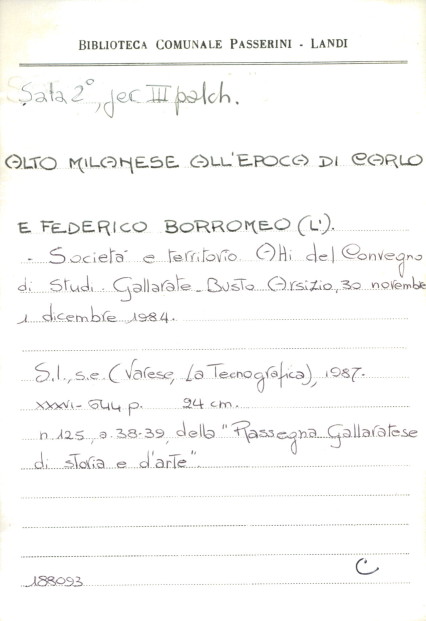 BIBLIOTECA COMUNALE PASSERINI - LANDI
Sala 2°, sec III palch.
ALTO MILANESE ALL'EPOCA DI CARLO
E FEDERICO BORROMEO (L').
- Società e territorio Atti del Convegno
di Studi. Gallarate - Busto Arsizio, 30 novembre
1 dicembre 1984.
S.l., s.e. (Varese, La Tecnografica), 1987.
XXXVI - 644 p. 24 cm.
n. 125, a. 38-39, della "Rassegna Gallaratese
di storia e d'arte".
C
188093